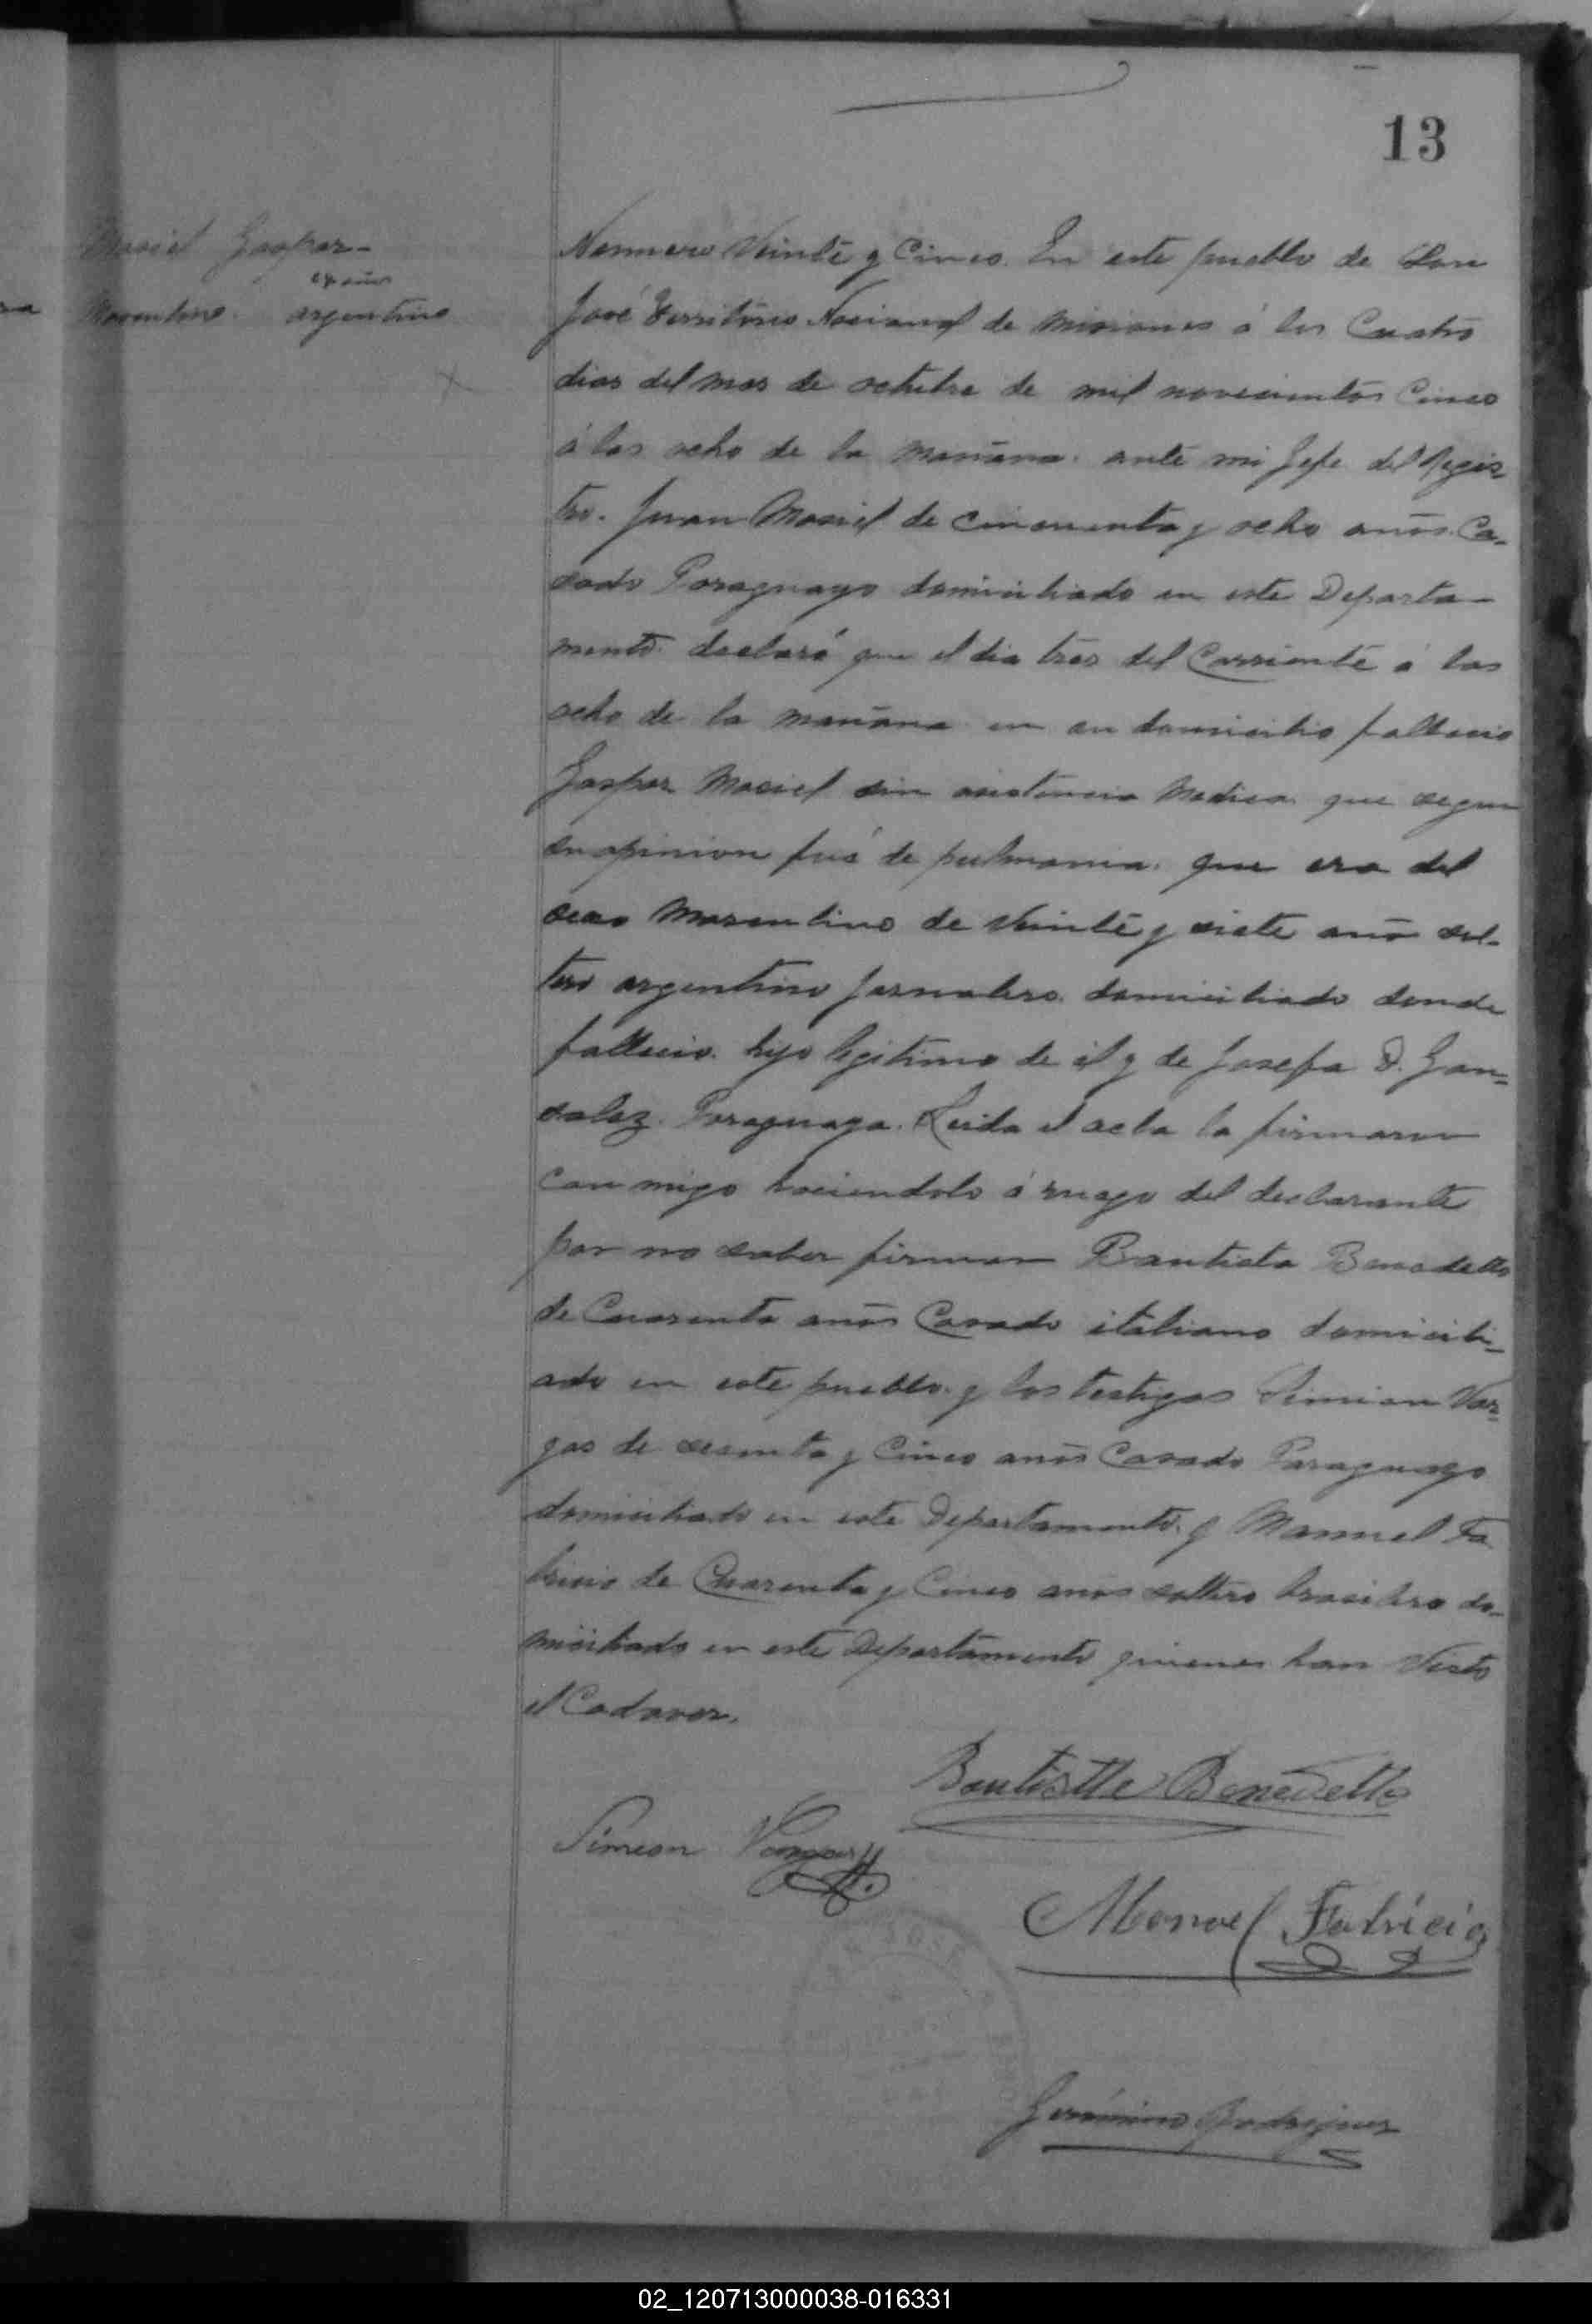 13
Maciel Gaspar-
27 años
Mascutino. argentino
Nummero Veinte y Cinco. En este pueblo de San
José Territorio Nacional de Misiones á los Cuatro
dias del mes de octubre de mil novecientos Cinco
á las ocho de la mañana. ante mi Jefe del Regis-
tro. Juan Maciel de cincuenta y ocho años. Ca-
sado Paraguayo domiciliado en este Departa-
mento. declaró que el dia tres del Corriente á las
ocho de la mañana en su domicilio fallecio
Gaspar Maciel sin asistencia Medica. que segun
su opinion fué de pulmonia. que era del
sexo Mascutino de Veinte y siete año sol-
tero argentino jornalero. domiciliado donde
fallecio. hijo legitimo de él y de Josefa D. Gon-
salez. Paraguaya. Leida el acta la firmaron
con migo haciendolo á ruego del declarante
por no saber firmar Bautista Benedetto
de Cuarenta años Casado italiano domicili-
ado en este pueblo. y los testigos Simion Var-
gas de sesenta y Cinco años Casado Paraguayo
domiciliado en este Departamento. y Manuel Fa
bricio de Cuarenta y Cinco años soltero brasilero do-
miciliado en este Departamento quienes han Visto
el Cadaver.
Bautistte Benedetto
Simeon Vargas
Manoel Fabricio
Gerónimo Rodriguez
02_120713000038-016331